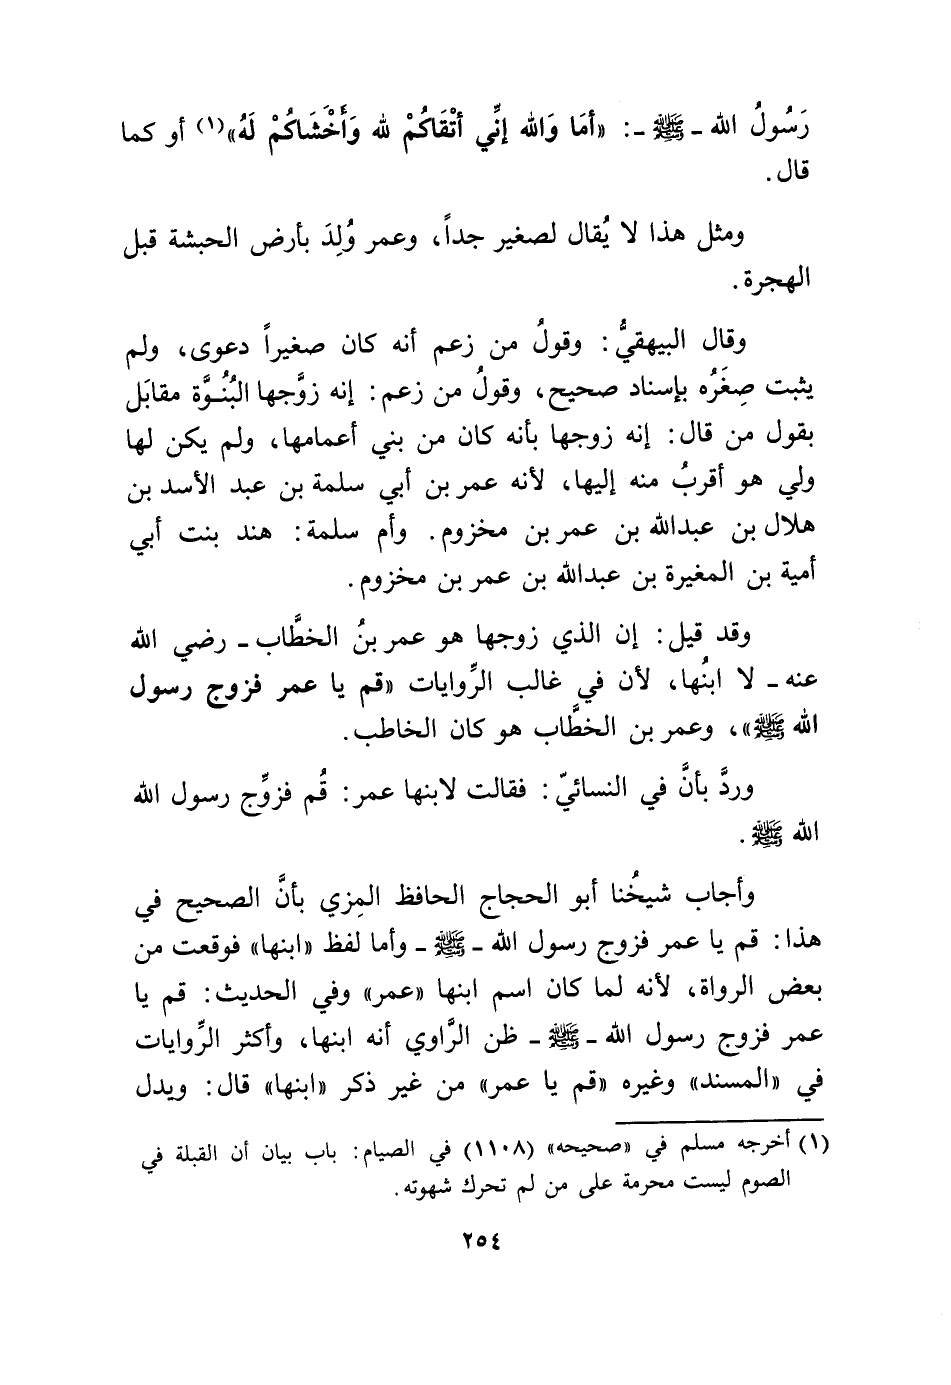 رَسُولُ الله ـ ﷺ ـ: «أمَا وَالله إنِّي أتْقَاكُمْ لله وَأَخْشَاكُمْ لَهُ»(١) أو كما
قال.
ومثل هذا لا يُقال لصغير جداً، وعمر وُلِدَ بأرض الحبشة قبل
الهجرة.
وقال البيهقيُّ: وقولُ من زعم أنه كان صغيراً دعوى، ولم
يثبت صِغَرُه بإسناد صحيح، وقولُ من زعم: إنه زوَّجها البُنُوَّة مقابَل
بقول من قال: إنه زوجها بأنه كان من بني أعمامها، ولم يكن لها
ولي هو أقربُ منه إليها، لأنه عمر بن أبي سلمة بن عبد الأسد بن
هلال بن عبدالله بن عمر بن مخزوم. وأم سلمة: هند بنت أبي
أمية بن المغيرة بن عبدالله بن عمر بن مخزوم.
وقد قيل: إن الذي زوجها هو عمر بنُ الخطَّاب ـ رضي الله
عنه ـ لا ابنُها، لأن في غالب الرِّوايات «قم يا عمر فزوج رسول
الله ﷺ»، وعمر بن الخطَّاب هو كان الخاطب.
وردَّ بأنَّ في النسائيّ: فقالت لابنها عمر: قُم فزوِّج رسول الله
الله ﷺ.
وأجاب شيخُنا أبو الحجاج الحافظ المِزي بأنَّ الصحيح في
هذا: قم يا عمر فزوج رسول الله ـ ﷺ ـ وأما لفظ «ابنها» فوقعت من
بعض الرواة، لأنه لما كان اسم ابنها «عمر» وفي الحديث: قم يا
عمر فزوج رسول الله ـ ﷺ ـ ظن الرَّاوي أنه ابنها، وأكثر الرِّوايات
في «المسند» وغيره «قم يا عمر» من غير ذكر «ابنها» قال: ويدل
(١) أخرجه مسلم في «صحيحه» (١١٠٨) في الصيام: باب بيان أن القبلة في
الصوم ليست محرمة على من لم تحرك شهوته.
٢٥٤